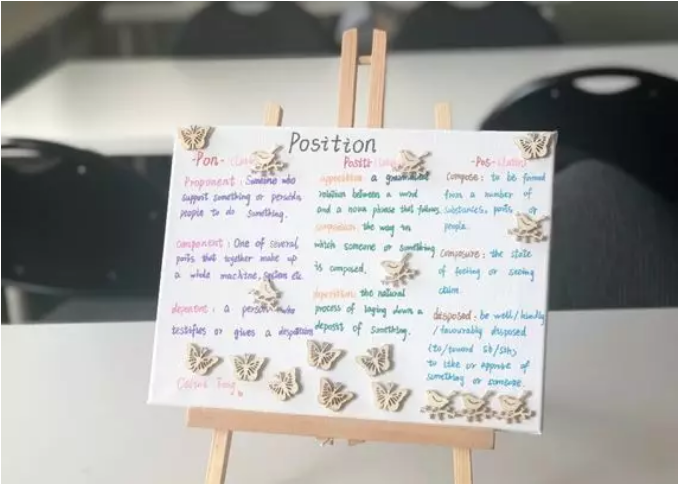 Position
-Pon-
Proponent: Someone who
support something or persuades
people to do something.
component: One of several
parts that together make up
a whole machine, system etc.
deponent: a person who
testifies or gives a deposition
Posit
apposition a grammatical
relation between a word
and a noun phrase that follows
composition the way in
which someone or something
is composed.
deposition: the natural
process of laying down a
deposit of something.
-Pos-
Compose: to be formed
from a number of
substances, parts, or
people.
Composure: the state
of feeling or
calm.
disposed: be well/kindly
/favourably disposed
(to/toward sb/sth)
to like or approve of
something or someone.